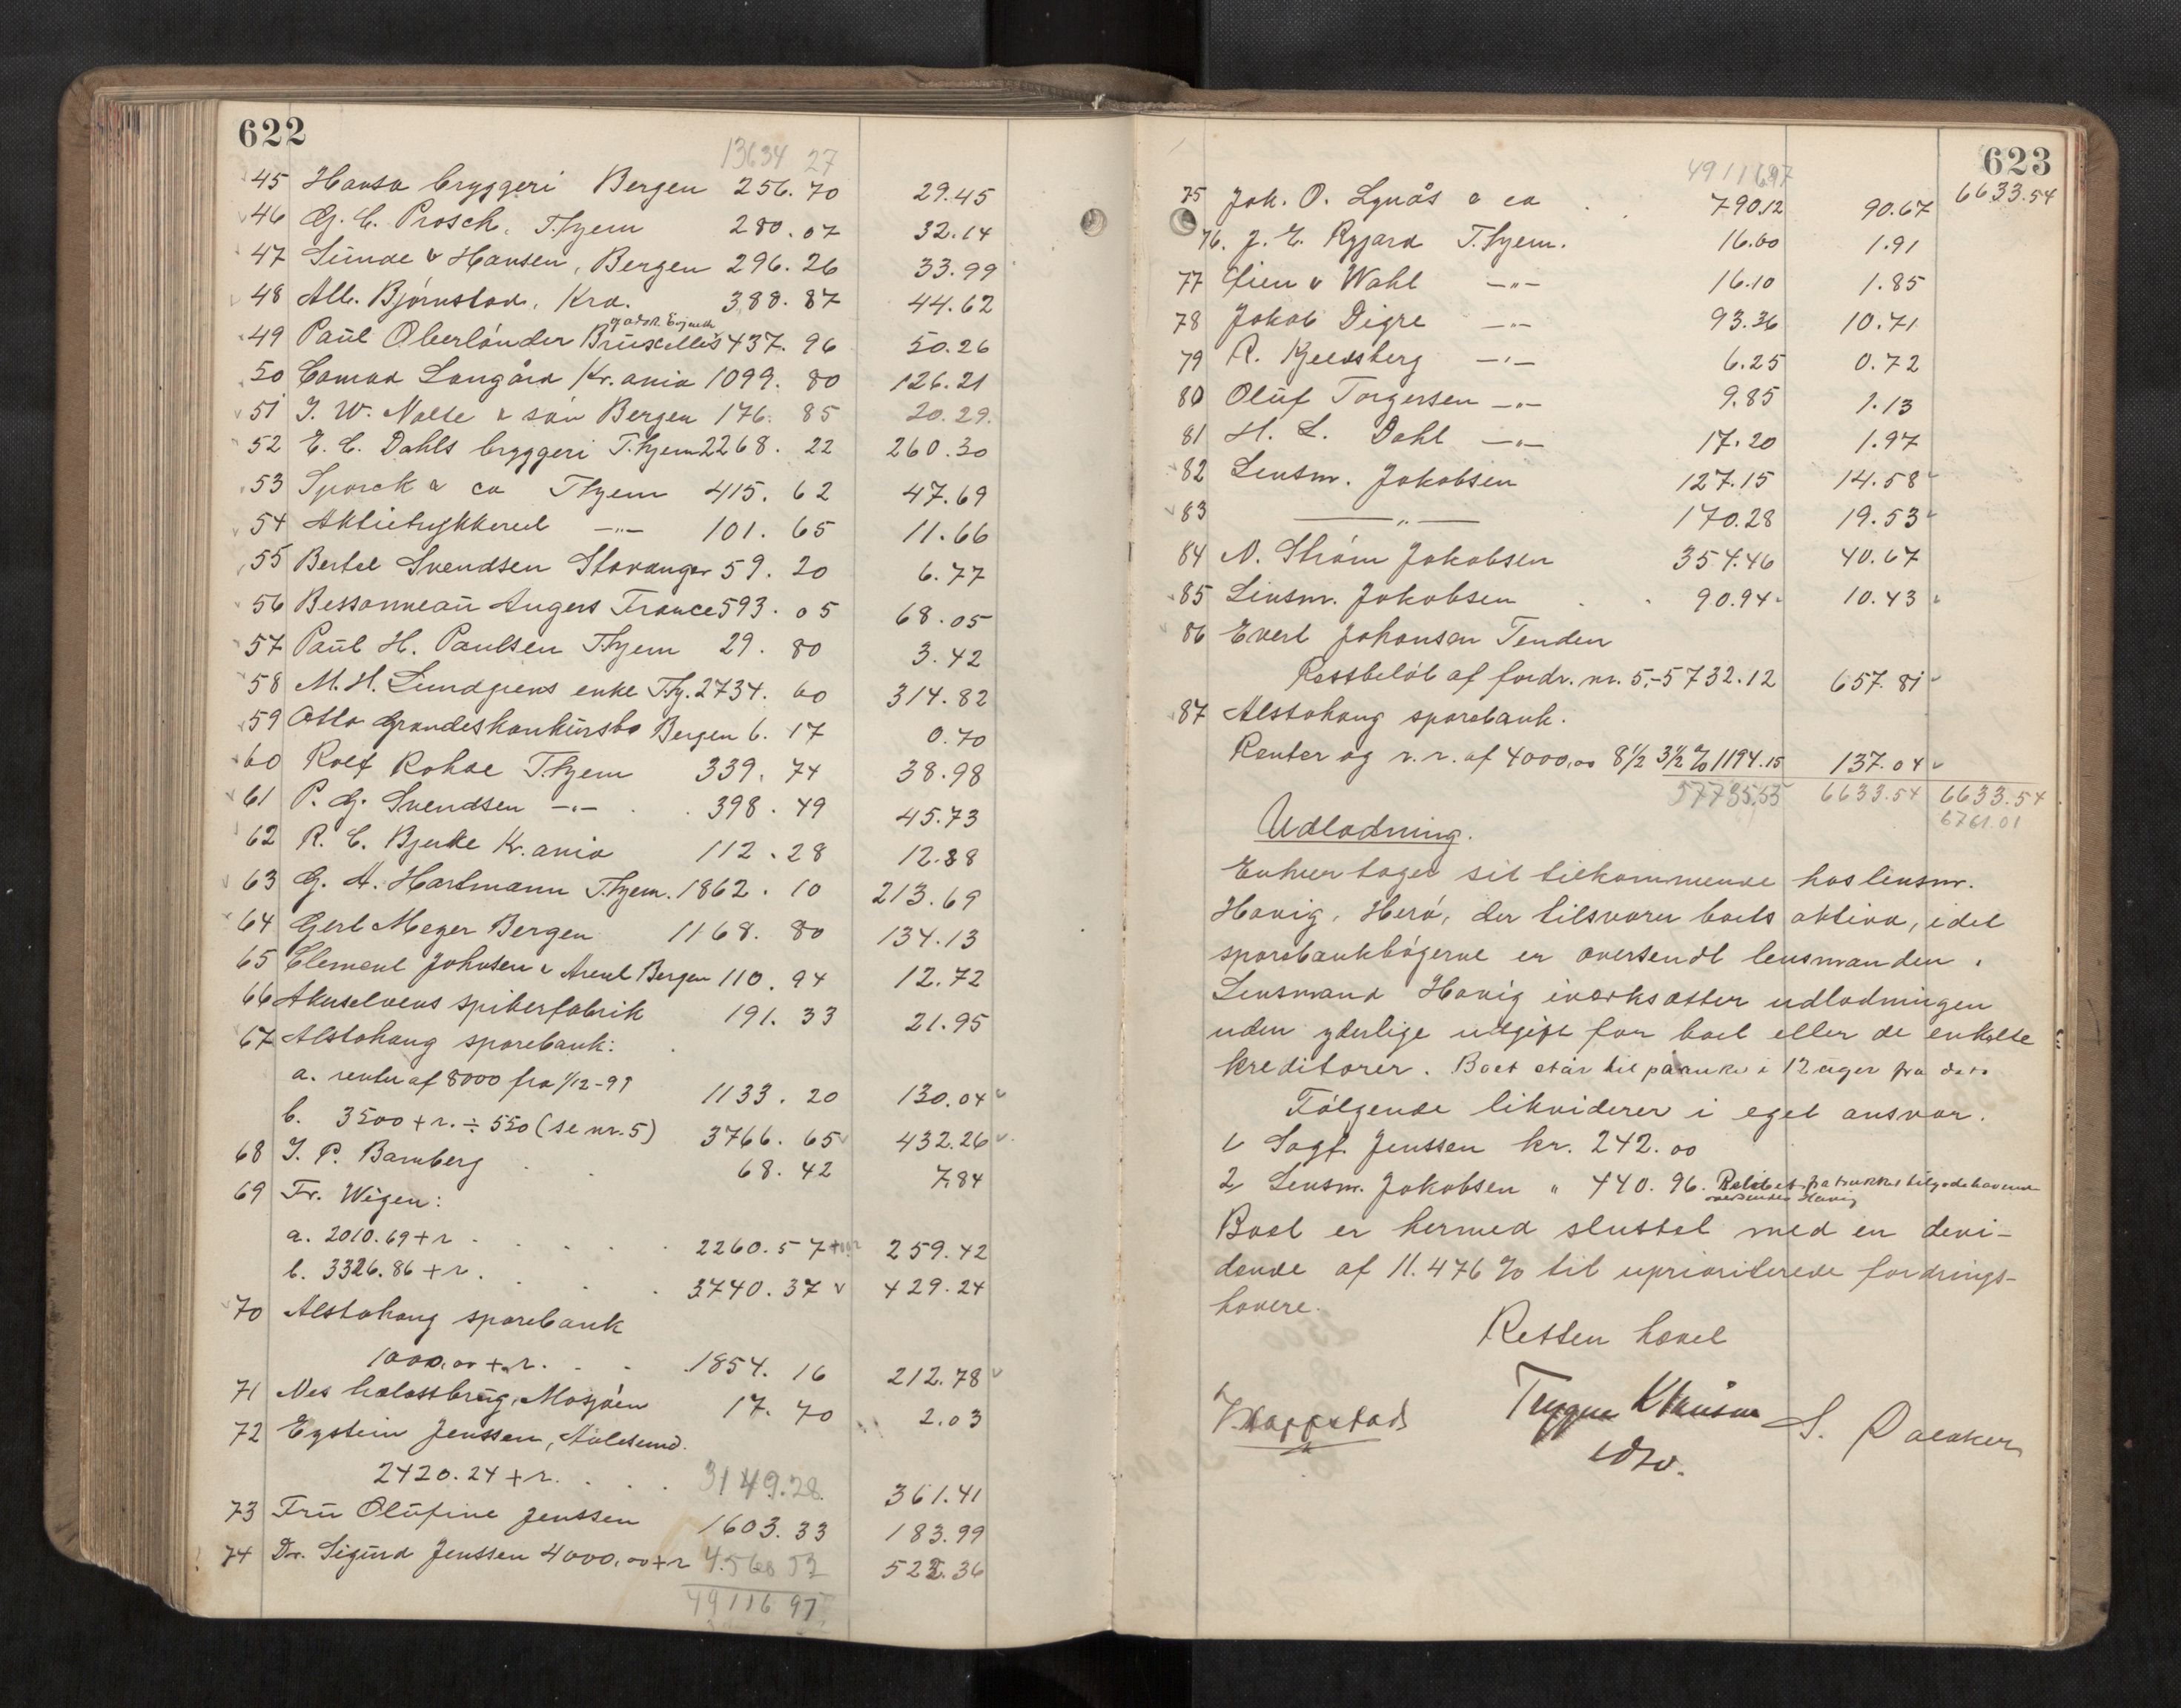 622
13634 27
45 Hansa bryggeri Bergen 256.70 29.45
46 G. C. Prosch, T.hjem 280.07 32.14
47 Sunde & Hansen, Bergen 296.26 33.99
48 Alb. Bjørnstad, Kra. 388.87 44.62
49 Paul Oberländer Brüxelles 437.96 50.26
50 Conrad Langård Kr.ania 1099.80 126.21
51 J. W. Nolte & søn Bergen 176.85 20.29.
52 E. C. Dahls bryggeri T.hjem 2268.22 260.30
53 Sporck & co Thjem 415.62 47.69
54 Aktietrykkeriet —"— 101.65 11.66
55 Bertel Svendsen Stavanger 59.20 6.77
56 Bessonneau Angers France 593.05 68.05
57 Paul H. Paulsen Thjem 29.80 3.42
58 M. H. Lundgrens enke T.hj. 2734.60 314.82
59 Otto Grandes konkursbo Bergen 6.17 0.70
60 Rolf Rohde T.hjem 339.74 38.98
61 P. G. Svendsen —"— 398.49 45.73
62 R. C. Bjerke Kr.ania 112.28 12.88
63 G. A. Hartmann T.hjem. 1862.10 213.69
64 Gert Meyer Bergen 1168.80 134.13
65 Clement Johnsen & Arent Bergen 110.94 12.72
66 Akerselvens spikerfabrik 191.33 21.95
67 Alstahoug sparebank:
a. renter af 8000 fra 1/12-99 1133.20 130.04
b. 3500 + r. ÷ 550 (se nr. 5) 3766.65 432.26
68 J. P. Bamberg 68.42 7.84
69 Fr. Wigen:
a. 2010.69 + r 2260.57 259.42
b. 3326.86 + r. 3740.37 429.24
70 Alstahoug sparebank
1000.00 + r. 1854.16 212.78
71 Nes kalosstbrug, Mosjøen 17.70 2.03
72 Eystein Jenssen, Aalesund.
2420.24 + r. 3149.28 361.41
73 Fru Olufine Jenssen 1603.33 183.99
74 Dr. Sigurd Jenssen 4000.00 + r 4560 53 522.36
49116 97
623
4911697
6633.54
75 Joh. O. Lynås & co 790.12 90.67
76. J. E. Rygard T.hjem. 16.60 1.91
77 Lien & Wahl —"— 16.10 1.85
78 Jakob Digre —"— 93.36 10.71
79 R. Kjeldsberg —"— 6.25 0.72
80 Oluf Torgersen —"— 9.85 1.13
81 H. L. Dahl —"— 17.20 1.97
82 Lensm. Jakobsen 127.15 14.58
83 —"— 170.28 19.53
84 N. Strøm Jakobsen 354.46 40.67
85 Lensm. Jakobsen 90.94 10.43
86 Evert Johansen Tenden
Restbeløb af fordr. nr. 5.- 5732.12 657.81
87 Alstahoug sparebank.
Renter og r. r. af 4000.00 8 1/2 3 1/2 % 1194.15 137.04
57735.55 6633.54 6633.54
6761.01
Udlodning.
Enhver tager sit tilkommende hos lensm.
Havig, Herø, der tilsvarer boets aktiva, idet
sparebankbøgerne er oversendt lensmanden.
Lensmand Havig iverksætter udlodningen
uden yderlige udgift for boet eller de enkelte
kreditorer. Boet står til påanke i 12 uger fra dato
Følgende likviderer i eget ansvar.
1, Sagf. Jenssen kr. 242.00
2, Lensm. Jakobsen " 440.96. Beløbet fratrukket tilgodehavende
oversendes Havig
Boet er hermed sluttet med en devi-
dende af 11.476 % til uprioriterede fordrings-
havere.
Retten hævet
Trygve Klausen
cdw.